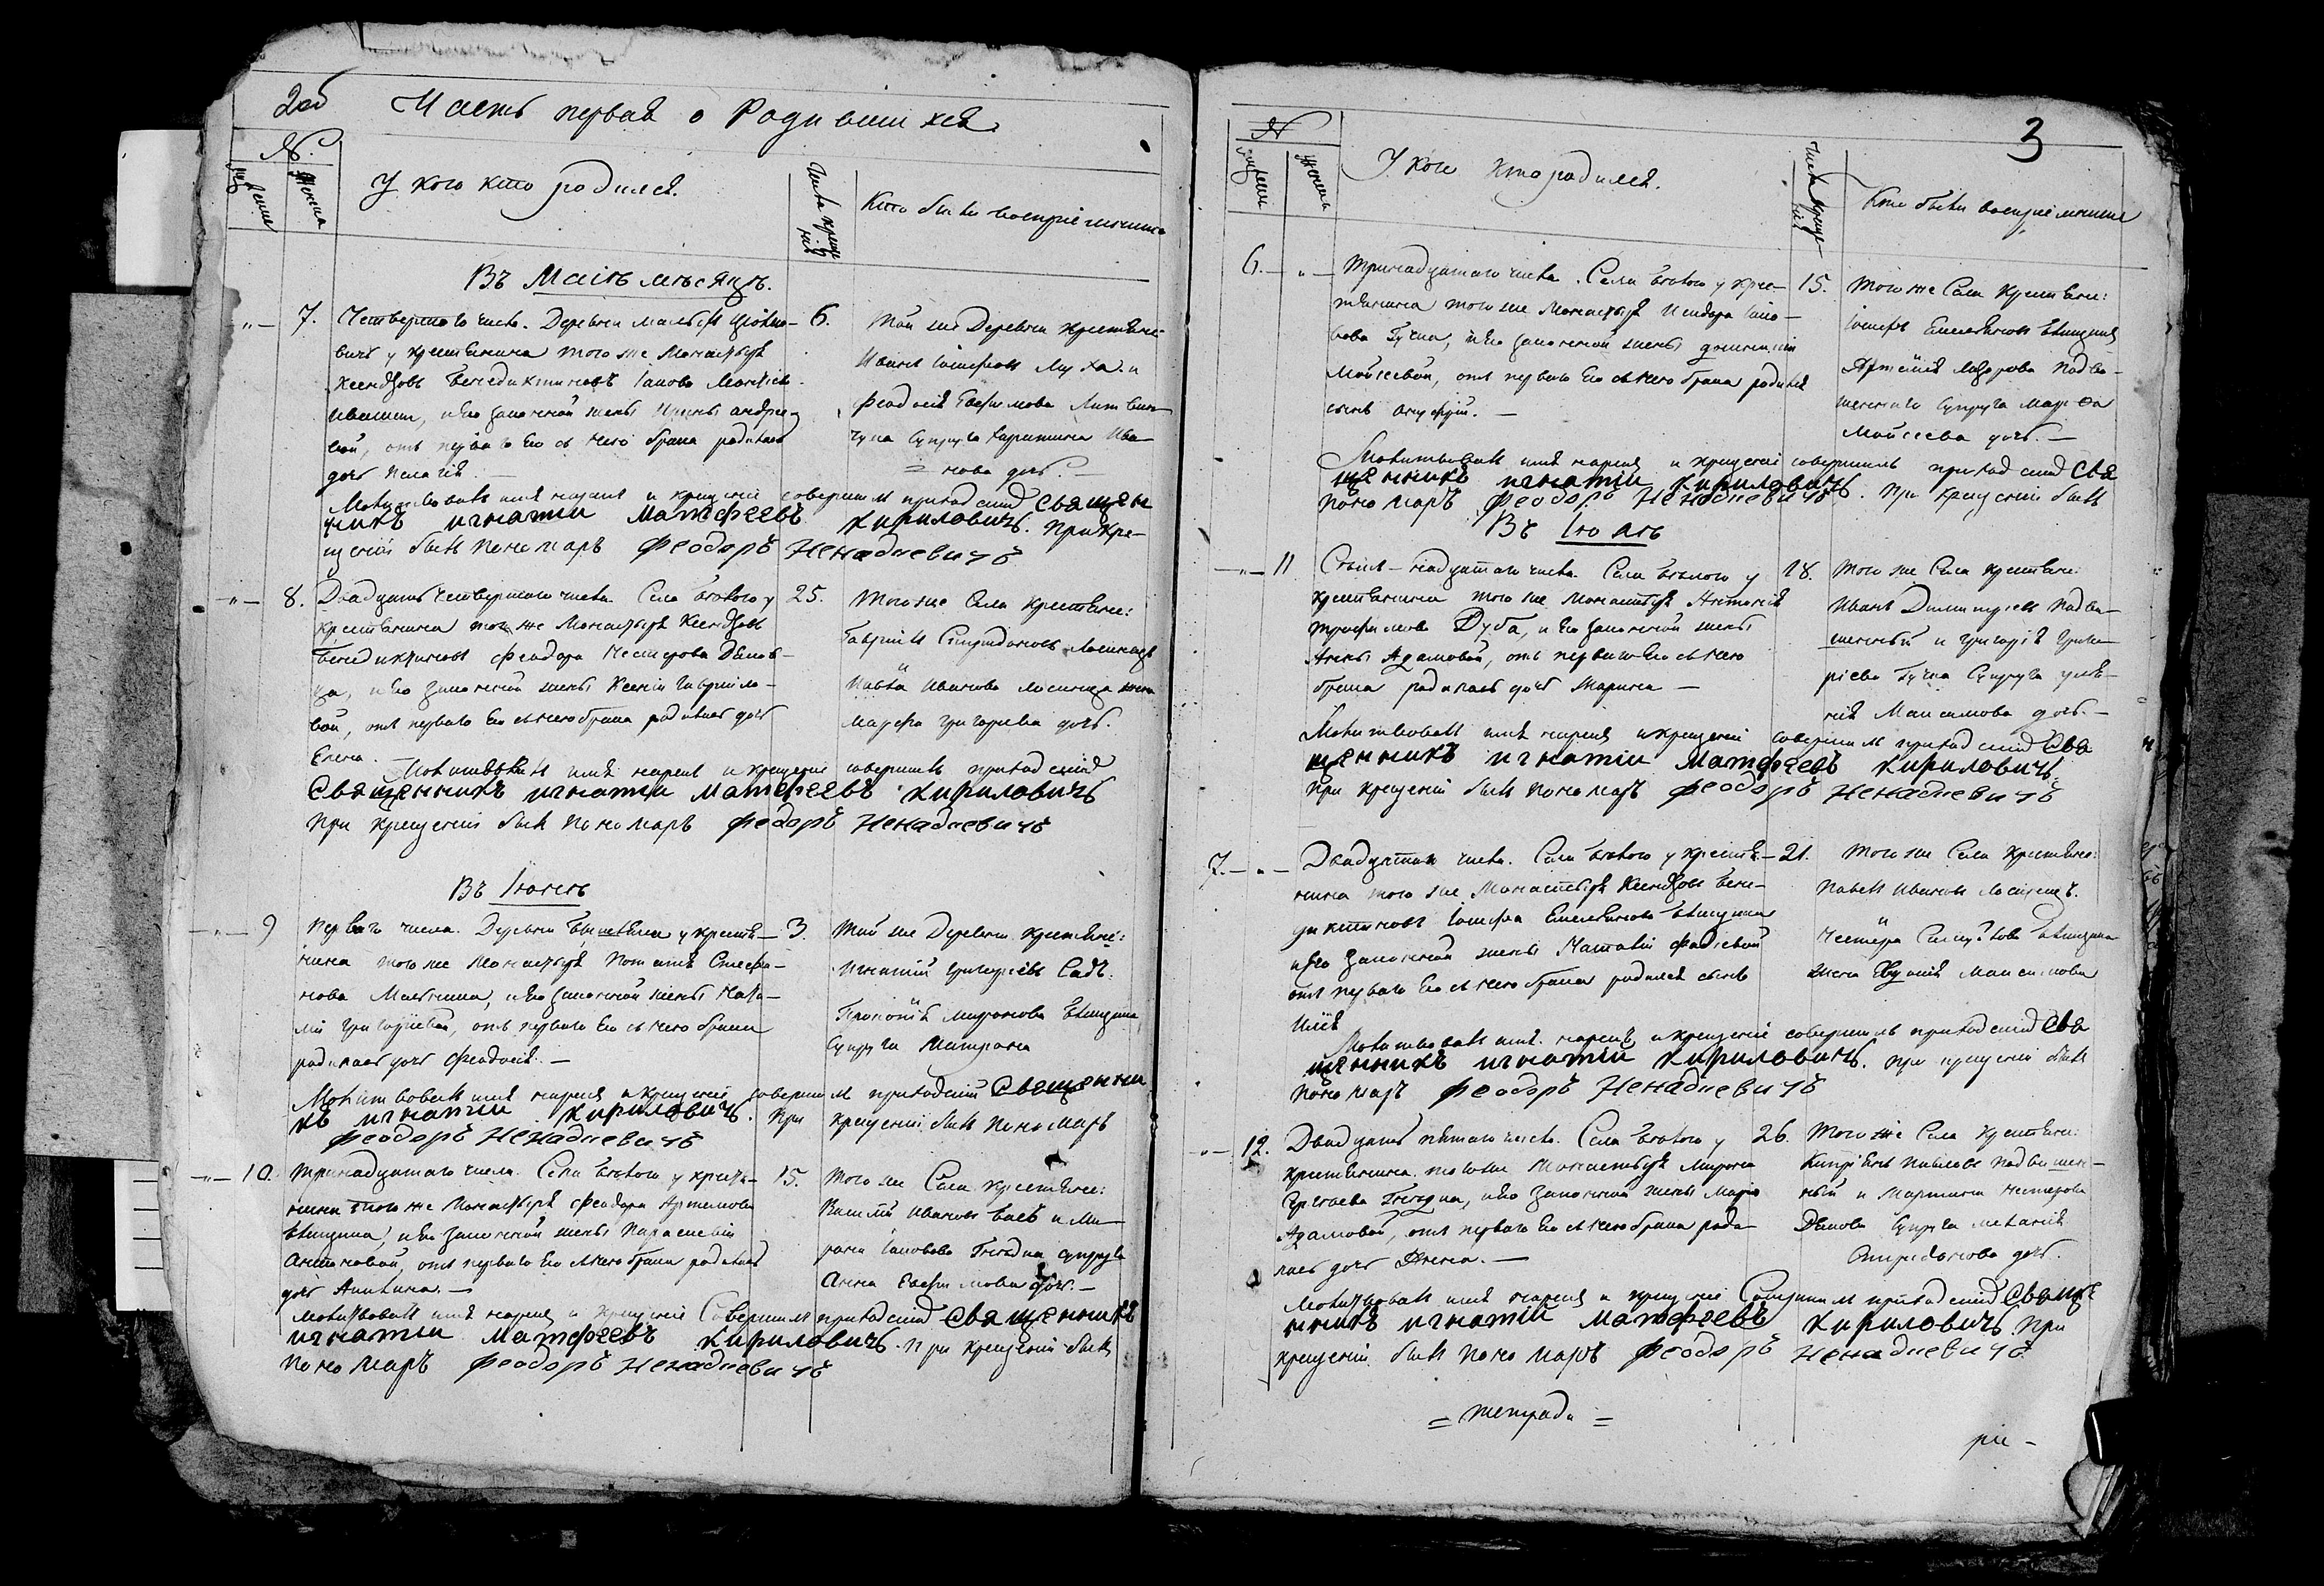 2об Часть первая о Родившихся.
№.
Муж ескъ Женска У кого кто родился. Числа креще нія Кто были восприемники
Въ Маіѣ мѣсяцѣ.
"— 7. Четвертого числа. Деревни
вичъ у крестьянина того же Монастыря
Ксендзовъ Бенедиктиновъ Іакова
и его законной жены Ирины Андрее-
вой, отъ перваго его съ нею брака родилась
дочь Пелагія.—
6. Той же Деревни Крестьяне:
Иванъ Іосифовъ Муха и
Феодосія Евфимова Литвин-
чука Супруга Екатерина Ива-
= нова дочь.
Молитвовалъ имя нарекъ и крещеніе совершилъ приходскій Священ
никъ игнатіи Матфеевъ кириловичъ. При кре-
щеніи былъ пономаръ Феодоръ Ненадкевичъ
"— 8. Двадцать Четвертого числа Села Бѣлого у
крестьянина того же Монастыря Ксендзовъ
Бенедиктиновъ Феодора Нестерова
и его законной жены Ксеніи Гавріило-
вой, отъ перваго его съ нею брака родилась дочь
Елена.—
25. Того же Села Крестьяне:
Гавріилъ Спиридоновъ Лосинецъ
и
Павла Иванова Лосинца жена
Марфа Григорьева дочь.
Молитвовалъ имя нарекъ и крещеніе совершилъ приходскій
Священникъ игнатіи Матфеевъ кириловичъ
При крещеніи былъ пономаръ феодоръ Ненадкевичъ
Въ Іюнѣ
"— 9 Перваго числа. Деревни у крестья-
нина того же Монастыря Потапія Стефа-
нова и его законной жены Ната-
ліи Григорьевой, отъ перваго его съ нею брака
родилась дочь Феодосія.—
3. Той же Деревни Крестьяне:
Игнатій Григорьевъ Садъ.
Прокопія Миронова
Супруга Матрона
Молитвовалъ имя нарекъ и крещеніе совершилъ приходскій Священни
къ игнатіи кириловичъ. При крещеніи былъ пономаръ
Феодоръ Ненадкевичъ
"— 10. Тринадцатаго числа Села Бѣлого у крестья-
нина того же Монастыря Феодора Артемова
и его законной жены Параскевіи
Антоновой, отъ перваго его съ нею брака родилась
дочь Акилина.—
15. Того же Села Крестьяне:
Василій Ивановъ и Ми-
рона Іаковова супруга
Анна Евфимова дочь.—
Молитвовалъ имя нарекъ и крещеніе Совершилъ приходскій Священникъ
игнатіи Матфеевъ кириловичъ. При крещеніи былъ
пономаръ Феодоръ Ненадкевичъ
3
№
У кого кто родился. Числа креще нія Кто были восприемники
6. — " — Тринадцатаго числа. Села Бѣлого у крес-
тьянина того же Монастыря Исидора Іако-
вова и его законной жены
Мойсеевой, отъ перваго его съ нею брака родился
сынъ Онуфрій.—
15. Того же Села Крестьяне:
Іосифъ Емельяновъ
Артемія Лазорева Подва-
женнаго Супруга Марфа
Мойсеева дочь.—
Молитвовалъ имя нарекъ и крещеніе совершилъ приходскій Свя
щенникъ игнатіи кириловичъ. При крещеніи былъ
пономаръ Феодоръ Ненадкевичъ
Въ Іюлѣ
— " — 11 числа. Села Бѣлого у
крестьянина того же Монастыря Антонія
Трофимова Дуба, и его законной жены
Анны Адамовой, отъ перваго его съ нею
брака родилась дочь Марина —
18. Того же Села Крестьяне:
Иванъ Димитріевъ Подва-
женный и Григорія Григо-
ріева Супруга Улья-
нія Максимова дочь.—
Молитвовалъ имя нарекъ и крещеніе совершилъ приходскій Свя
щенникъ игнатіи Матфеевъ кириловичъ.
При крещеніи былъ пономаръ Феодоръ Ненадкевичъ
7. — " — Двадцатаго числа. Села Бѣлого у крестья-
нина того же Монастыря Ксендзовъ Бене-
диктиновъ Іосифа Емельянова
и его законной жены Наталіи Фадѣевой
отъ перваго его съ нею брака родился сынъ
Илія
21. Того же Села Крестьяне:
Павелъ Ивановъ Лосинецъ.
и
Нестера
жена Евдокія Максимова
Молитвовалъ имя нарекъ и крещеніе совершилъ приходскій Свя
щенникъ игнатіи кириловичъ. При крещеніи былъ
пономаръ Феодоръ Ненадкевичъ
"— 12. Двадцать пятаго числа. Села Бѣлого у
крестьянина того же Монастыря Мирона
и его законной жены Маріи
Адамовой, отъ перваго его съ нею брака роди-
лась дочь Анна.—
26. Того же Села Крестьяне:
Кипріянъ Павловъ Подважен-
ный и Мартина Нестерова
Супруга Меланія
Спиридонова дочь.
Молитвовалъ имя нарекъ и крещеніе Совершилъ приходскій Священ
никъ игнатіи Матфеевъ кириловичъ. При
крещеніи былъ пономаръ Феодоръ Ненадкевичъ.
= тетради =